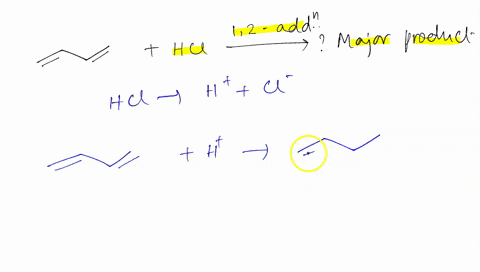 + HCl 1,2-addⁿ ? Major product
HCl → H⁺ + Cl⁻
+ H⁺ → +